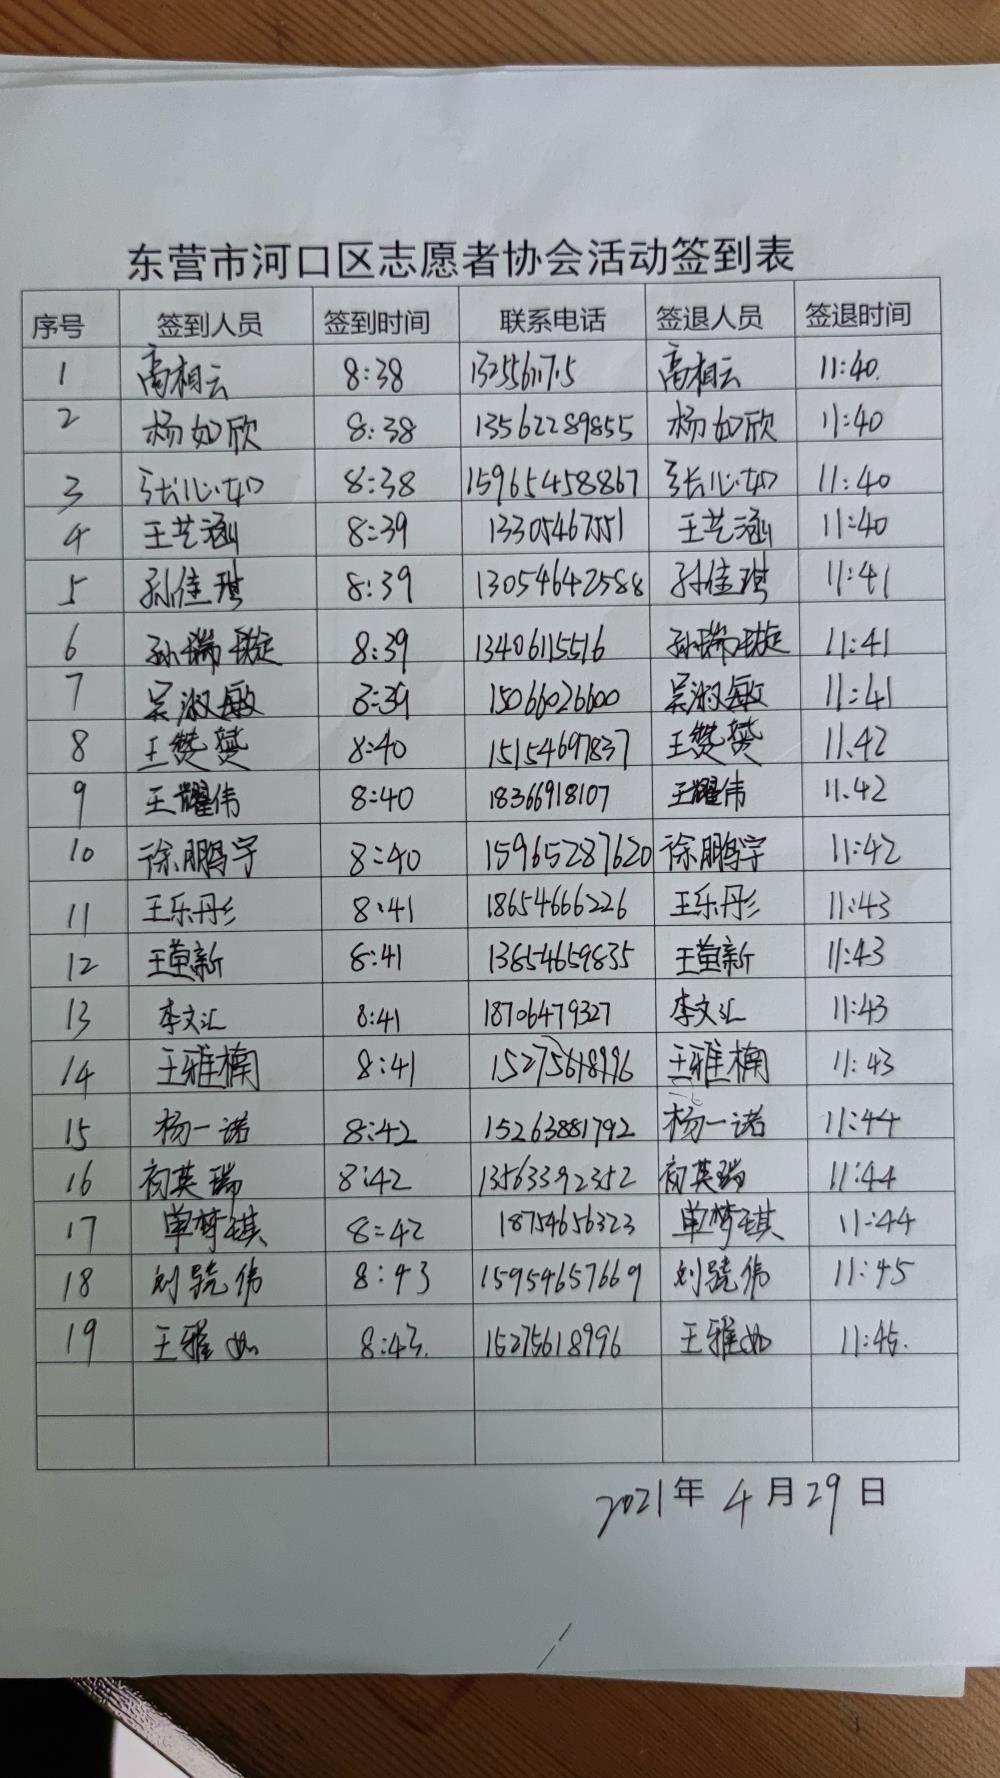 东营市河口区志愿者协会活动签到表
序号 签到人员 签到时间 联系电话 签退人员 签退时间
1 高相云 8:38 高相云 11:40.
2 杨如欣 8:38 13562289855 杨如欣 11:40
3 张心如 8:38 15965458867 张心如 11:40
4 王艺涵 8:39 13305467551 王艺涵 11:40
5 孙佳琪 8:39 13054642588 孙佳琪 11:41
6 孙瑞璇 8:39 13406115516 孙瑞璇 11:41
7 吴淑敏 8:39 15066026600 吴淑敏 11:41
8 8:40 15154697837 11.42
9 王耀伟 8:40 18366918107 王耀伟 11.42
10 徐鹏宇 8:40 15965287620 徐鹏宇 11:42
11 王乐彤 8:41 18654666226 王乐彤 11:43
12 8:41 13654659835 11:43
13 李文汇 8:41 18706479327 李文汇 11:43
14 王雅楠 8:41 王雅楠 11:43
15 杨一诺 8:42 15263881792 杨一诺 11:44
16 初英瑞 8:42 13563392352 初英瑞 11:44
17 单梦琪 8:42 18754656323 单梦琪 11:44
18 刘骁伟 8:43 15954657669 刘骁伟 11:45
19 王雅如 8:43. 15275618996 王雅如 11:45.
2021年 4 月 29 日